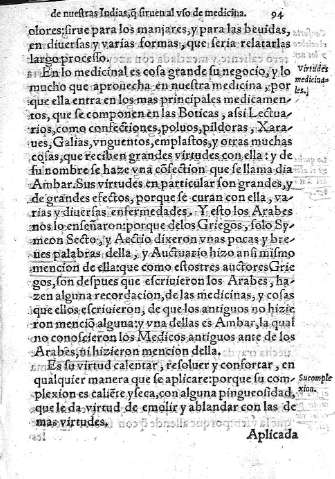 de nuestras Indias, q̃ siruen al vso de medicina. 94
olores; sirue para los manjares, y para las beuidas,
en diuersas y varias formas, que seria relatarlas
largo processo.
En lo medicinal es cosa grande su negocio, y lo
mucho que aprouecha en nuestra medicina, por
que ella entra en los mas principales medicamen-
tos, que se componen en las Boticas, assi Lectua-
rios, como confectiones, poluos, pildoras, Xara-
ues, Galias, vnguentos, emplastos, y otras muchas
cosas, que reciben grandes virtudes con ella: y de
su nombre se haze vna cõfection que se llama dia
Ambar. Sus virtudes en particular son grandes, y
de grandes efectos, porque se curan con ella, va-
rias y diuersas enfermedades. Y esto los Arabes
nos lo enseñaron: porque delos Griegos, solo Sy-
meon Secto, y Aectio dixeron vnas pocas y bre-
ues palabras della, y Auctuario hizo ansi mismo
mencion de ella: que como estostres auctores Grie
gos, son despues que escriuieron los Arabes, ha-
zen alguna recordacion, de las medicinas, y cosas
que ellos escriuieron, de que los antiguos no hizie
ron menciõ alguna: y vna dellas es Ambar, la qual
no conoscieron los Medicos antiguos ante de los
Arabes, ni hizieron mencion della.
Es su virtud calentar, resoluer y confortar, en
qualquier manera que se aplicare: porque su com-
plexion es caliẽte y seca, con alguna pinguosidad,
que le da virtud de emolir y ablandar con las de
mas virtudes.
Aplicada
Virtudes
medicina-
les.
Su comple
xion.